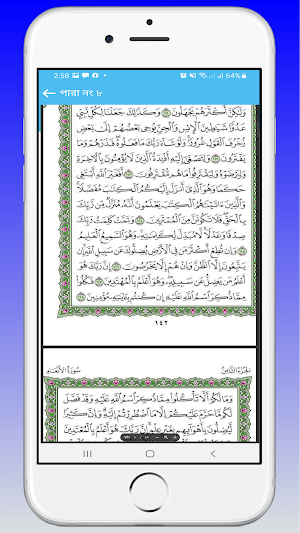 2:58 64%
পারা নং ৮
وَلَٰكِنَّ أَكْثَرَهُمْ يَجْهَلُونَ ١١١ وَكَذَٰلِكَ جَعَلْنَا لِكُلِّ نَبِيٍّ
عَدُوًّا شَيَٰطِينَ ٱلْإِنسِ وَٱلْجِنِّ يُوحِى بَعْضُهُمْ إِلَىٰ بَعْضٍ
زُخْرُفَ ٱلْقَوْلِ غُرُورًا وَلَوْ شَآءَ رَبُّكَ مَا فَعَلُوهُ فَذَرْهُمْ وَمَا
يَفْتَرُونَ ١١٢ وَلِتَصْغَىٰٓ إِلَيْهِ أَفْـِٔدَةُ ٱلَّذِينَ لَا يُؤْمِنُونَ بِٱلْءَاخِرَةِ
وَلِيَرْضَوْهُ وَلِيَقْتَرِفُوا۟ مَا هُم مُّقْتَرِفُونَ ١١٣ أَفَغَيْرَ ٱللَّهِ أَبْتَغِى
حَكَمًا وَهُوَ ٱلَّذِىٓ أَنزَلَ إِلَيْكُمُ ٱلْكِتَٰبَ مُفَصَّلًا
وَٱلَّذِينَ ءَاتَيْنَٰهُمُ ٱلْكِتَٰبَ يَعْلَمُونَ أَنَّهُۥ مُنَزَّلٌ مِّن رَّبِّكَ
بِٱلْحَقِّ فَلَا تَكُونَنَّ مِنَ ٱلْمُمْتَرِينَ ١١٤ وَتَمَّتْ كَلِمَتُ رَبِّكَ
صِدْقًا وَعَدْلًا لَّا مُبَدِّلَ لِكَلِمَٰتِهِۦ وَهُوَ ٱلسَّمِيعُ ٱلْعَلِيمُ
١١٥ وَإِن تُطِعْ أَكْثَرَ مَن فِى ٱلْأَرْضِ يُضِلُّوكَ عَن سَبِيلِ ٱللَّهِ إِن
يَتَّبِعُونَ إِلَّا ٱلظَّنَّ وَإِنْ هُمْ إِلَّا يَخْرُصُونَ ١١٦ إِنَّ رَبَّكَ هُوَ
أَعْلَمُ مَن يَضِلُّ عَن سَبِيلِهِۦ وَهُوَ أَعْلَمُ بِٱلْمُهْتَدِينَ ١١٧ فَكُلُوا۟
مِمَّا ذُكِرَ ٱسْمُ ٱللَّهِ عَلَيْهِ إِن كُنتُم بِـَٔايَٰتِهِۦ مُؤْمِنِينَ ١١٨
١٤٢
الجزء الثامن سورة الأنعام
وَمَا لَكُمْ أَلَّا تَأْكُلُوا۟ مِمَّا ذُكِرَ ٱسْمُ ٱللَّهِ عَلَيْهِ وَقَدْ فَصَّلَ
لَكُم مَّا حَرَّمَ عَلَيْكُمْ إِلَّا مَا ٱضْطُرِرْتُمْ إِلَيْهِ وَإِنَّ كَثِيرًا
لَّيُضِلُّونَ بِأَهْوَآئِهِم بِغَيْرِ عِلْمٍ إِنَّ رَبَّكَ هُوَ أَعْلَمُ بِٱلْمُعْتَدِينَ